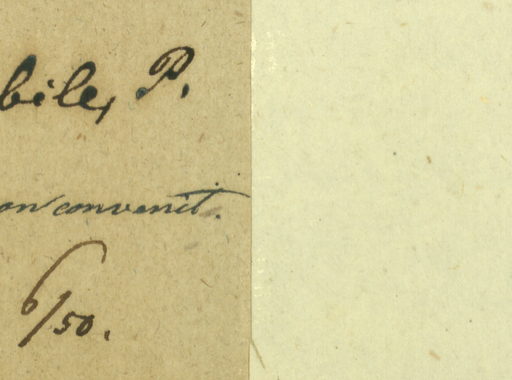 bile, P.
on convenit.
6/50.